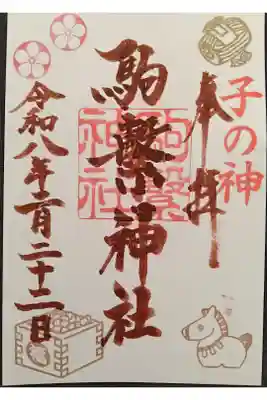 子の神
奉拝
駒繋神社
駒繋神社
令和八年一月二十二日